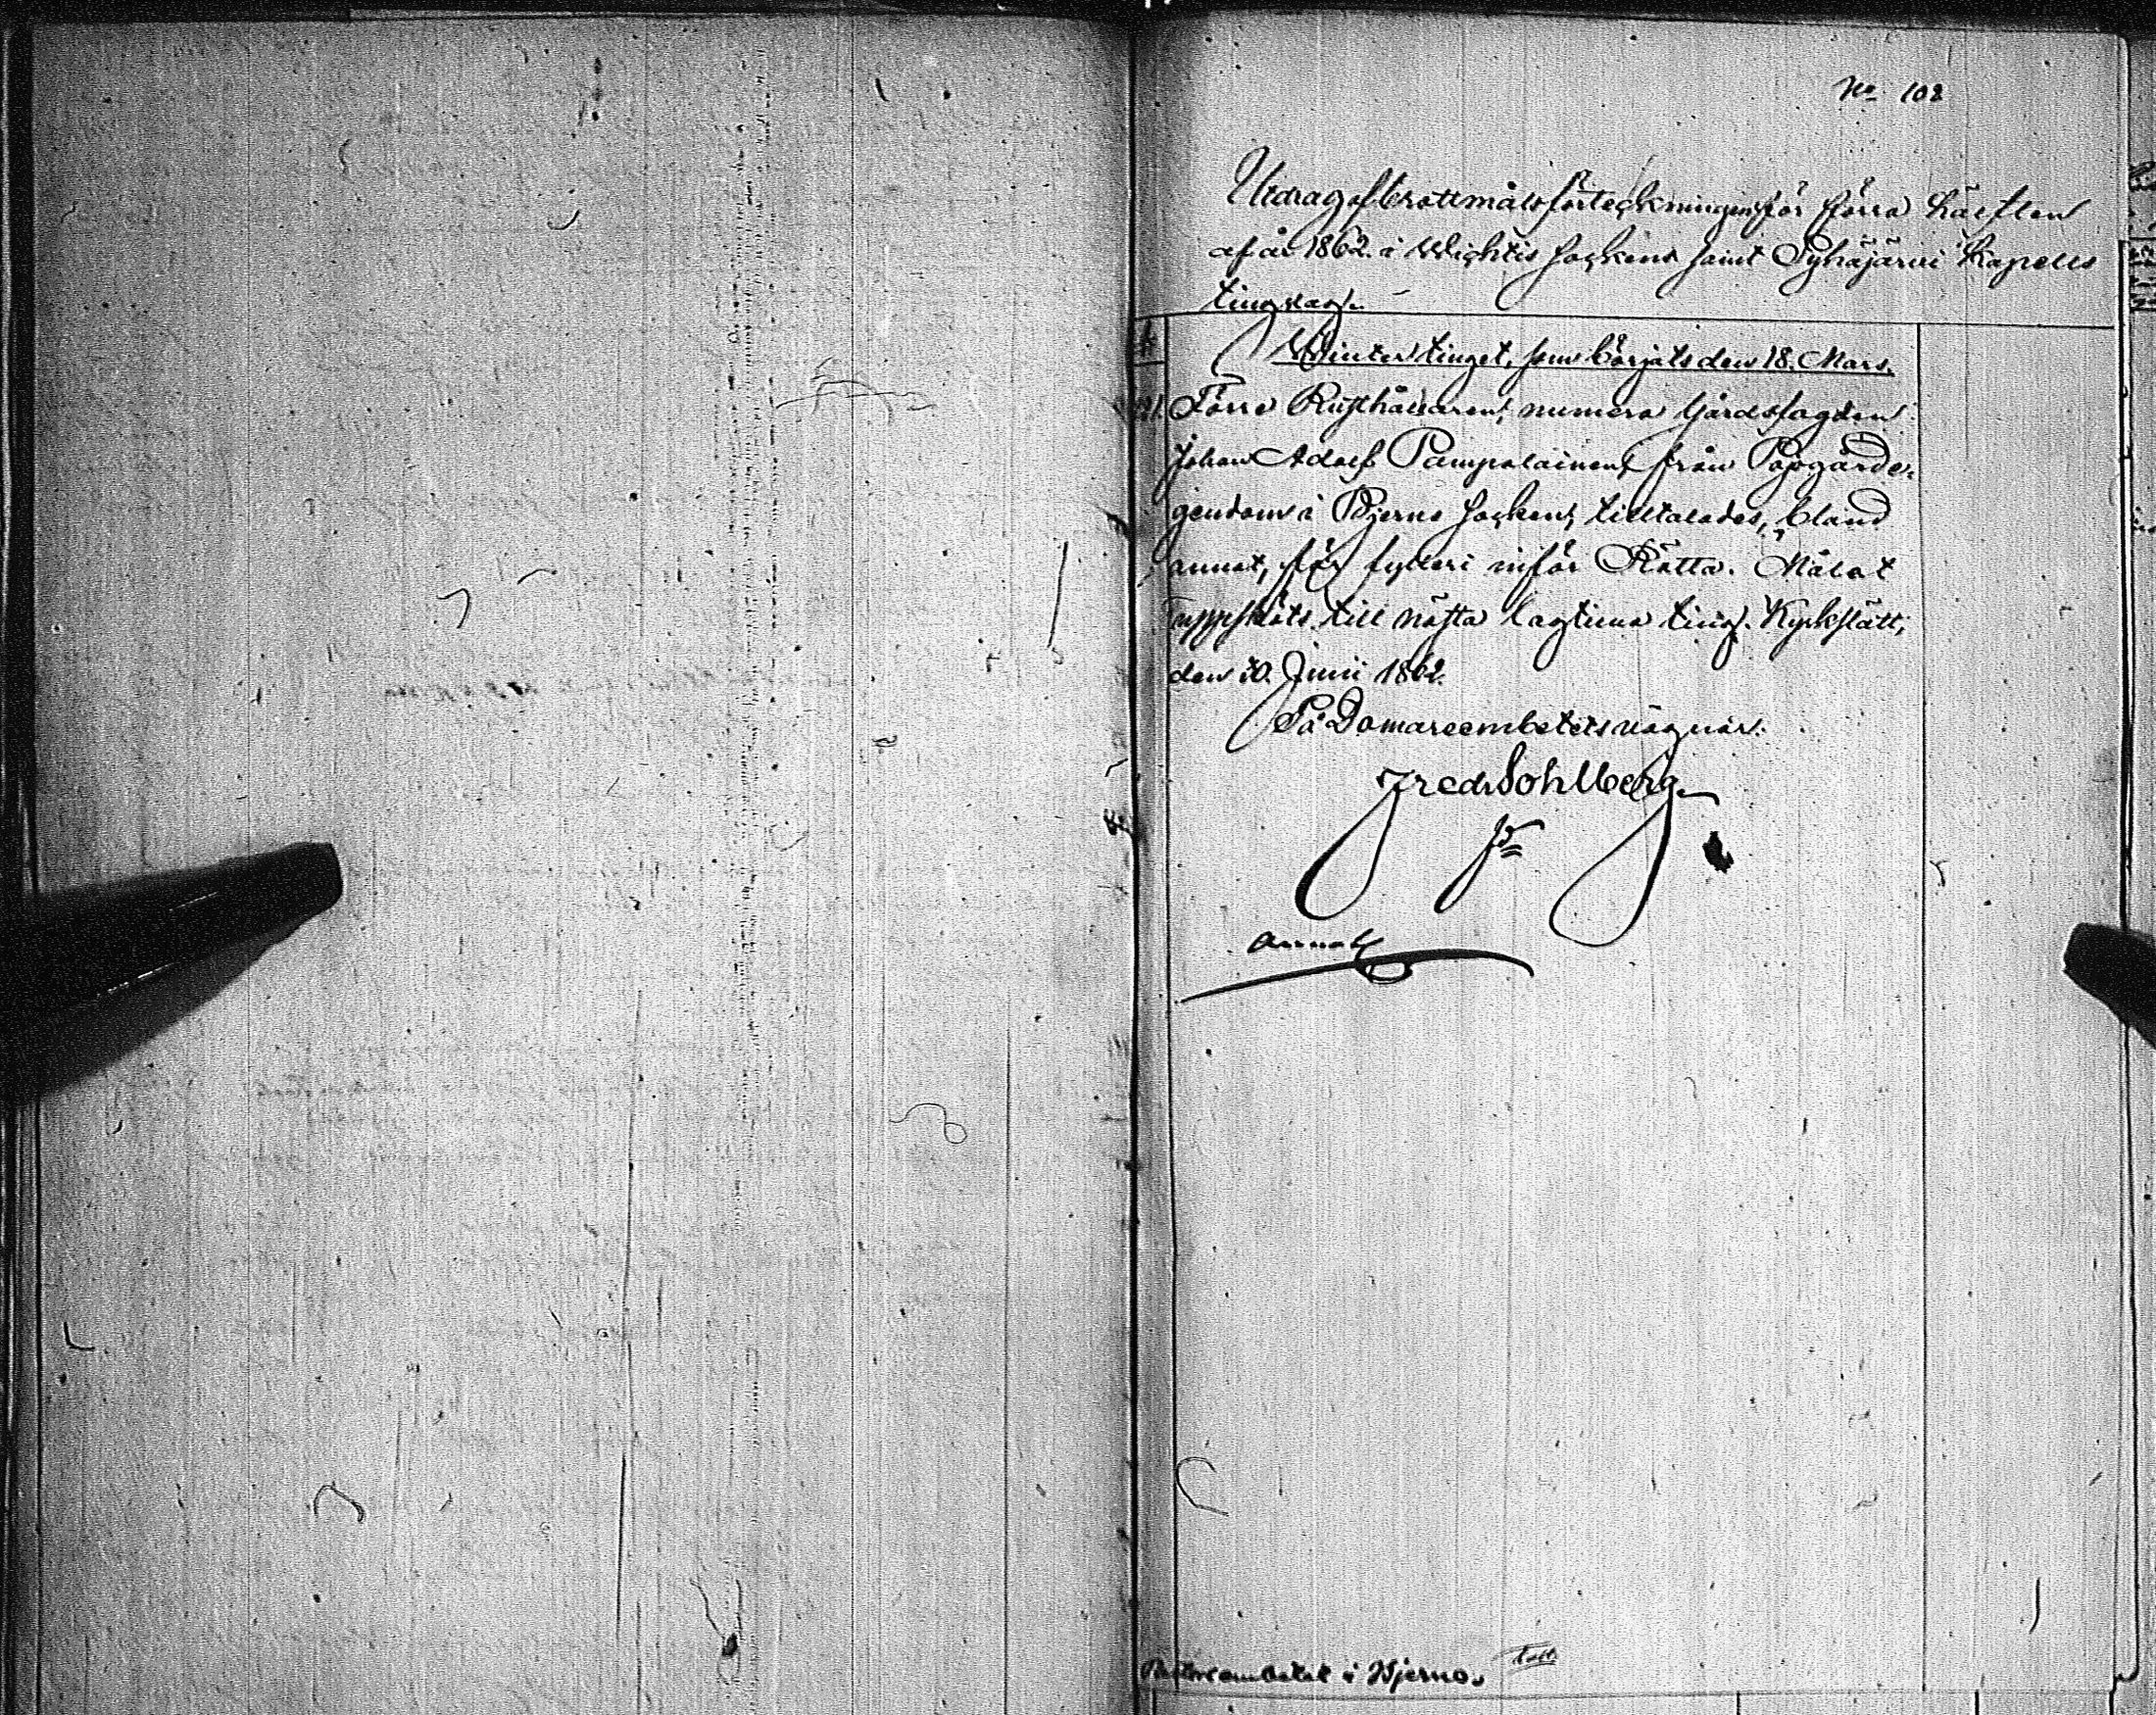 No 102
Utdrag af brottmålsförteckningen för förra hälften
af år 1862 i Wichtis Sockens samt Pyhäjärvi Kapells
tingslag.
Wintertinget, som börjats den 18. Mars.
Förre Rusthållaren, numera Gårdsfogden
Johan Adolf Pampolainen från Pojogårds
gendom i Bjerno Socken, tilltalades, bland
annat, för fylleri inför Rätta. Målet
uppsköts till nästa lagtima ting. Kyrkslätt,
den 30. Junii 1862.
På Domareembetets vägnar:
Fredr Sohlberg
Annot
Pastorsembetet i Bjerno.